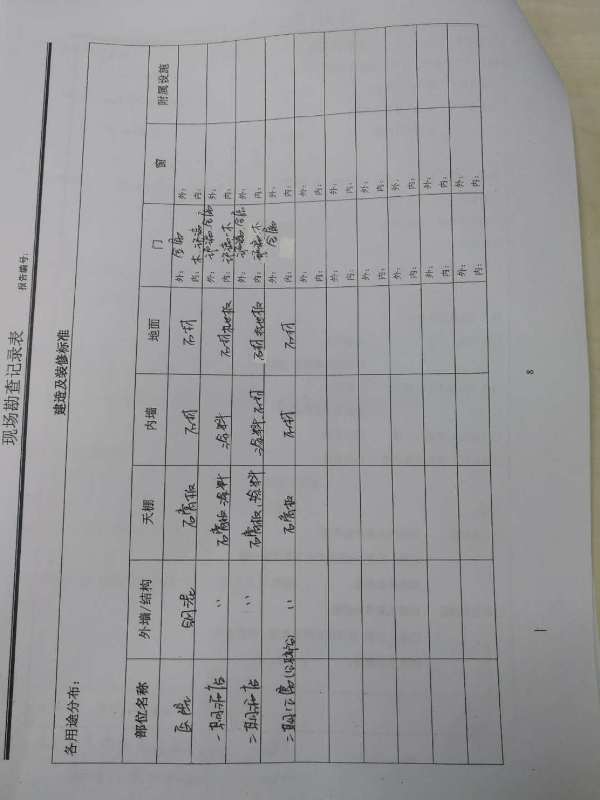 现场勘查记录表
报告编号:
建造及装修标准
各用途分布:
部位名称 外墙/结构 天棚 内墙 地面 门 窗 附属设施
医院 钢混 石膏板 石材 石材 外: 金属 内: 木 玻璃 外: 内:
一期酒店 〃 石膏板 涂料 涂料 石材 地板 外: 玻璃 金属 内: 玻璃 木 外: 内:
二期酒店 〃 石膏板、涂料 涂料 石材 石材 地板 外: 玻璃 金属 内: 玻璃 木 外: 内:
〃 石膏板 石材 石材 外: 金属 内: 外: 内:
外: 内: 外: 内:
外: 内: 外: 内:
外: 内: 外: 内:
外: 内: 外: 内:
外: 内: 外: 内:
外: 内: 外: 内:
8